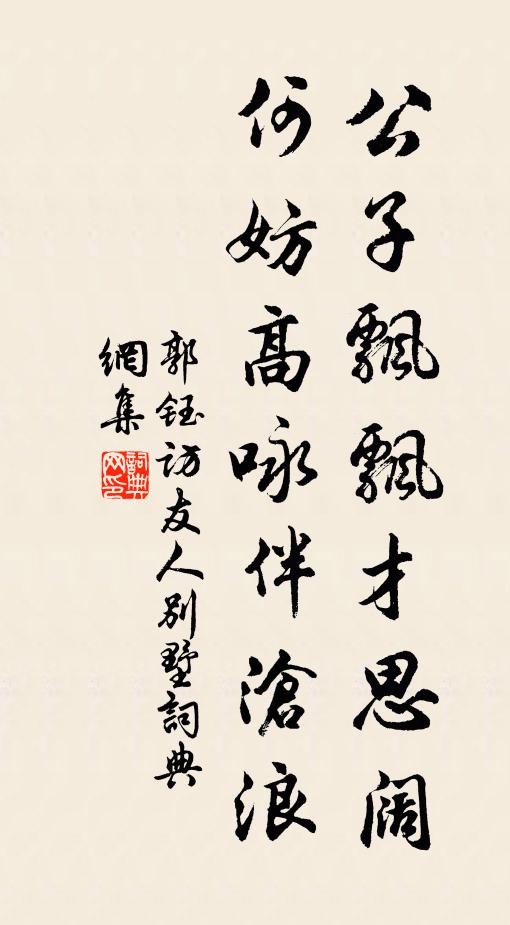 公子飄飄才思阔
何妨高咏伴滄浪
郭鈺访友人别墅詞典
網集
詞典
网印